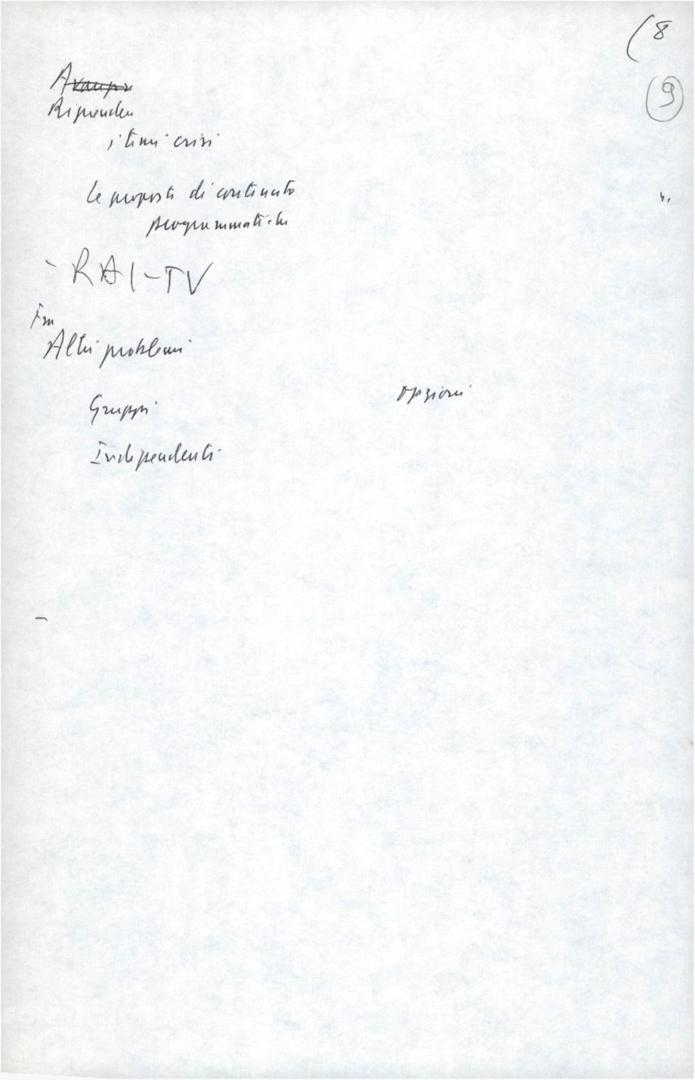 (8
9
Riprendere
i temi crisi
le proposte di contenuto
programmatiche
- RAI-TV
Altri problemi
Gruppi
opzioni
Indipendenti